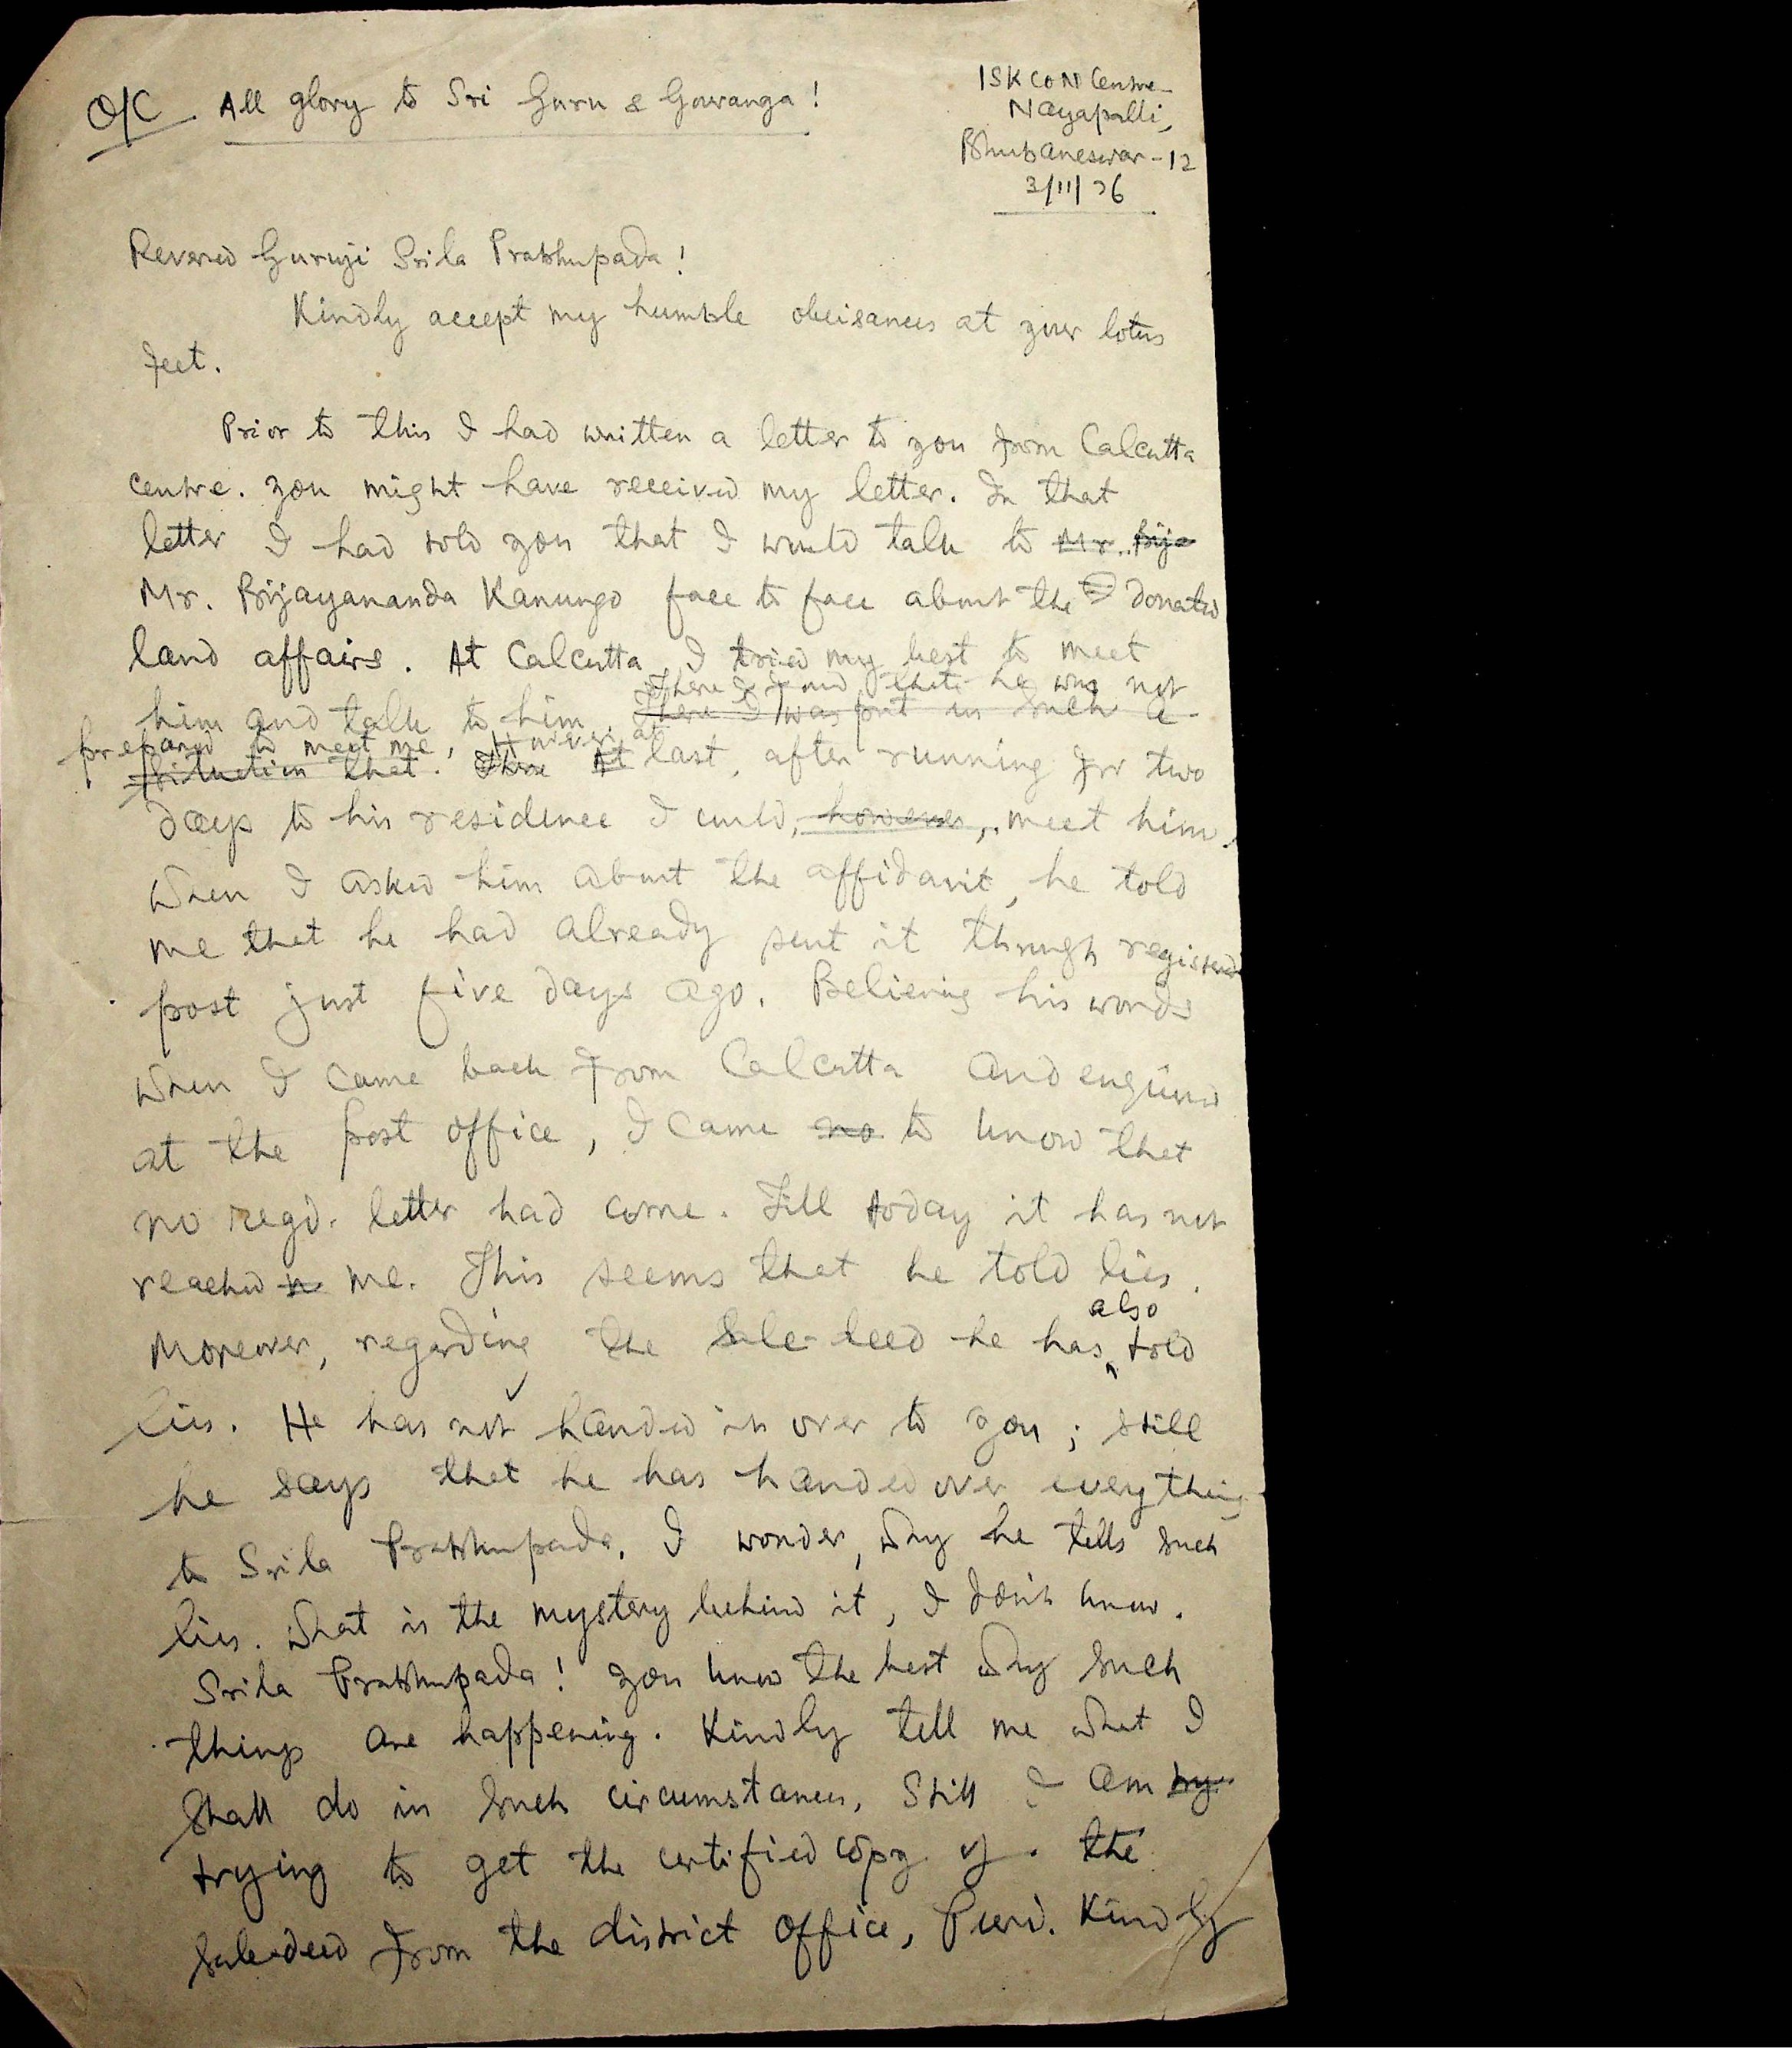 O/C All glory to Sri Guru & Gouranga!
ISKCON Centre
Nayapalli,
Bhubaneswar-12
3/11/76
Revered Guruji Srila Prabhupada!
Kindly accept my humble obeisances at your lotus
feet.
Prior to this I had written a letter to you from Calcutta
centre. you might have received my letter. In that
letter I had told you that I would talk to Mr. Bija
Mr. Bijayananda Kanungo face to face about the donated
land affairs. At Calcutta, I tried my best to meet
There I found that he was not
him and talk to him. There I was put in such a
prepared to meet me, However at
situation that. There At last, after running for two
days to his residence I could, however, meet him.
When I asked him about the affidavit, he told
me that he had already sent it through registered
post just five days ago. Believing his words
when I came back from Calcutta and enquired
at the post office, I came no to know that
no regd. letter had come. Till today it has not
reached me. This seems that he told lies.
also
Moreover, regarding the Sale-deed he has told
lies. He has not handed it over to you; still
he says that he has handed over everything
to Srila Prabhupada. I wonder, why he tells such
lies. What is the mystery behind it, I don't know.
Srila Prabhupada! you know the best why such
things are happening. Kindly tell me what I
shall do in such circumstances. Still I am try
trying to get the certified copy of the
Sale-deed from the district office, Puri. Kindly